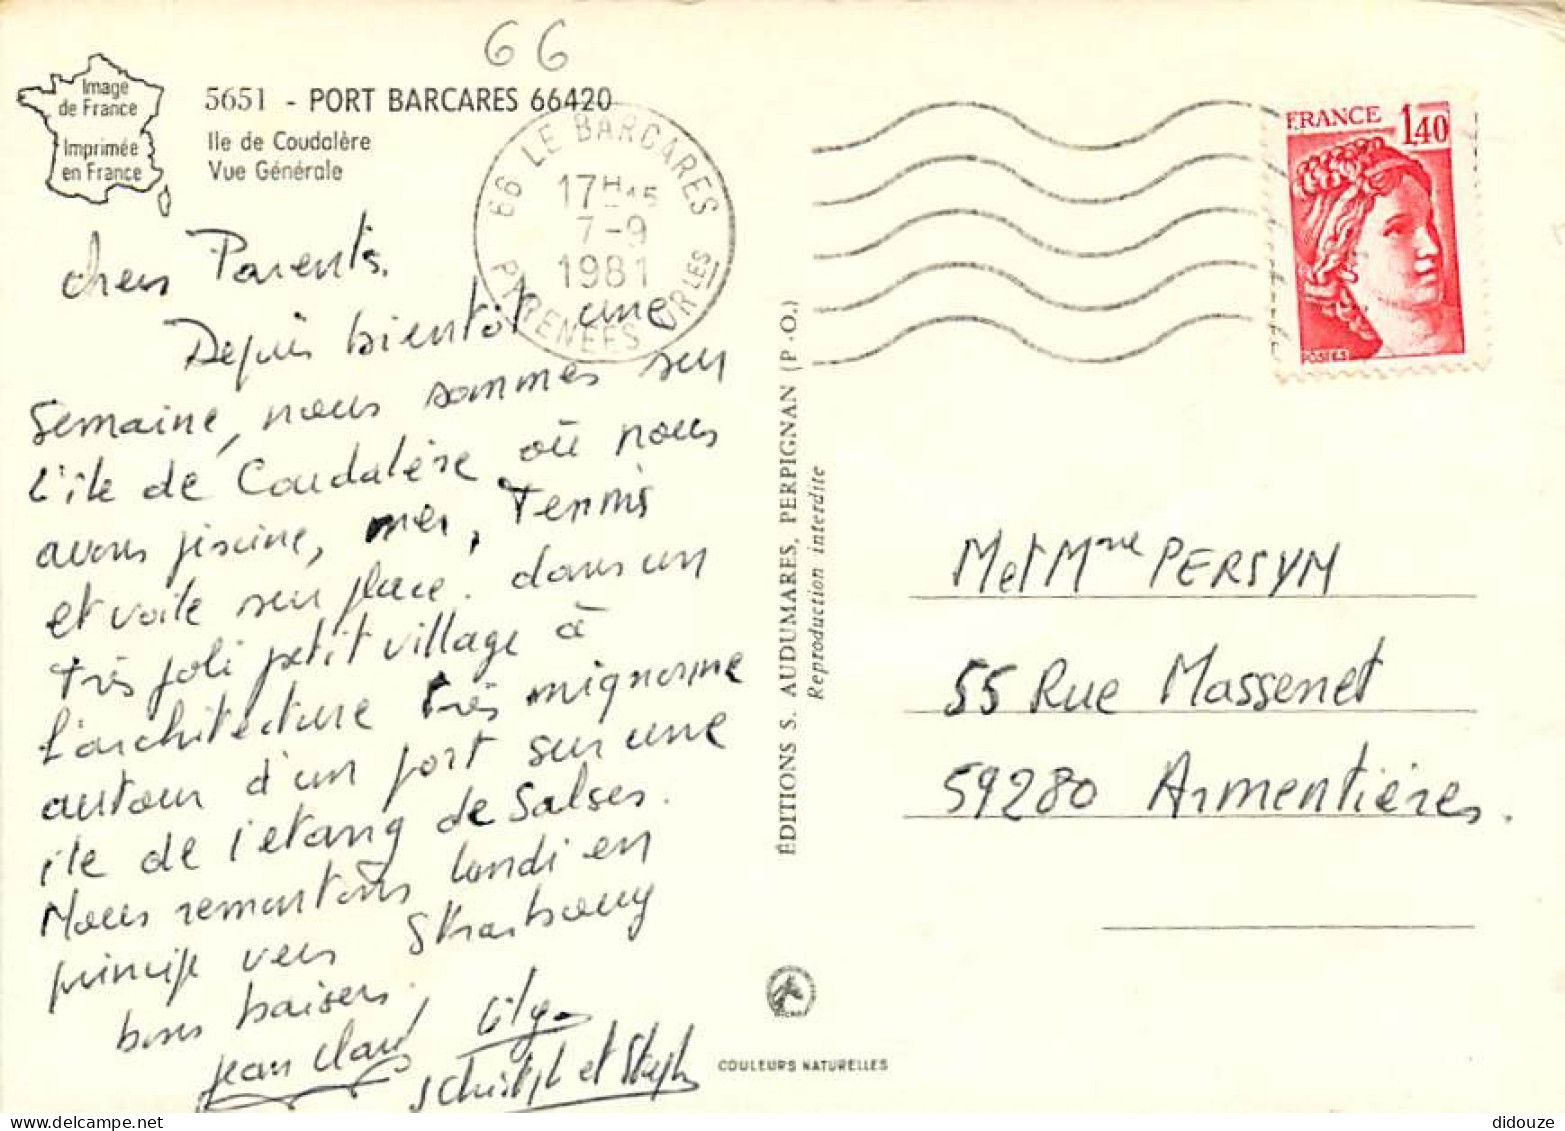 66
Image
de France
Imprimée
en France
5651 - PORT BARCARES 66420
Ile de Coudalère
Vue Générale
66 LE BARCARES
17H45
7-9
1981
PYRENEES ORLES
FRANCE 1,40
POSTES
chers Parents.
Depuis bientôt une
semaine, nous sommes sur
l'île de Coudalère où nous
avons piscine, mer, Tennis
et voile sur place. dans un
très joli petit village à
l'architecture très mignonne
autour d'un port sur une
île de l'etang de Salses.
Nous remontons lundi en
principe vers Strasbourg
bons baisers.
Jean Claude
Christoph et Steph
ÉDITIONS S. AUDUMARES, PERPIGNAN (P.-O.)
Reproduction interdite
M et Mme PERSYN
55 Rue Massenet
59280 Armentières.
COULEURS NATURELLES
didouze